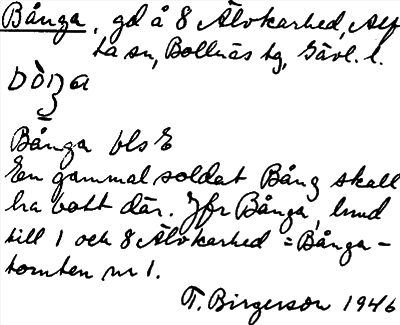 Bånga, gd å 8 Älvkarhed, Alf
ta sn, Bollnäs tg, Gävl. l.
bòŋa
Bånga bls E
En gammal soldat Bång skall
ha bott där. Jfr Bånga, lund
till 1 och 8 Älvkarhed = Bånga-
tomten nr 1.
T. Birgerson 1946